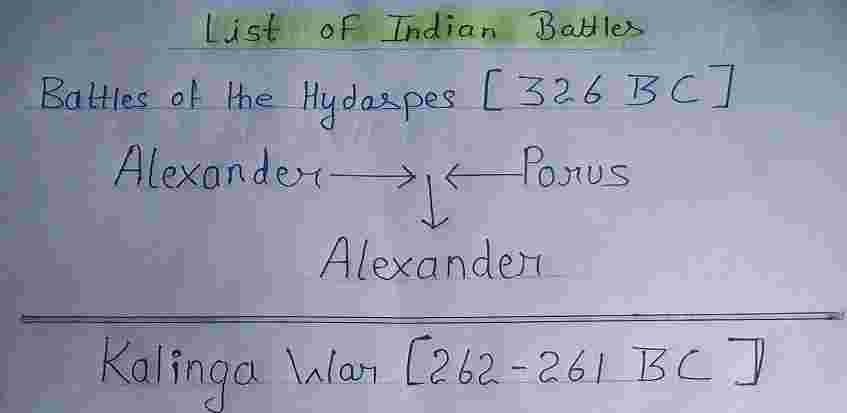 List of Indian Battles
Battles of the Hydaspes [326 BC]
Alexander → ↓ ← Porus
Alexander
Kalinga War [262-261 BC]